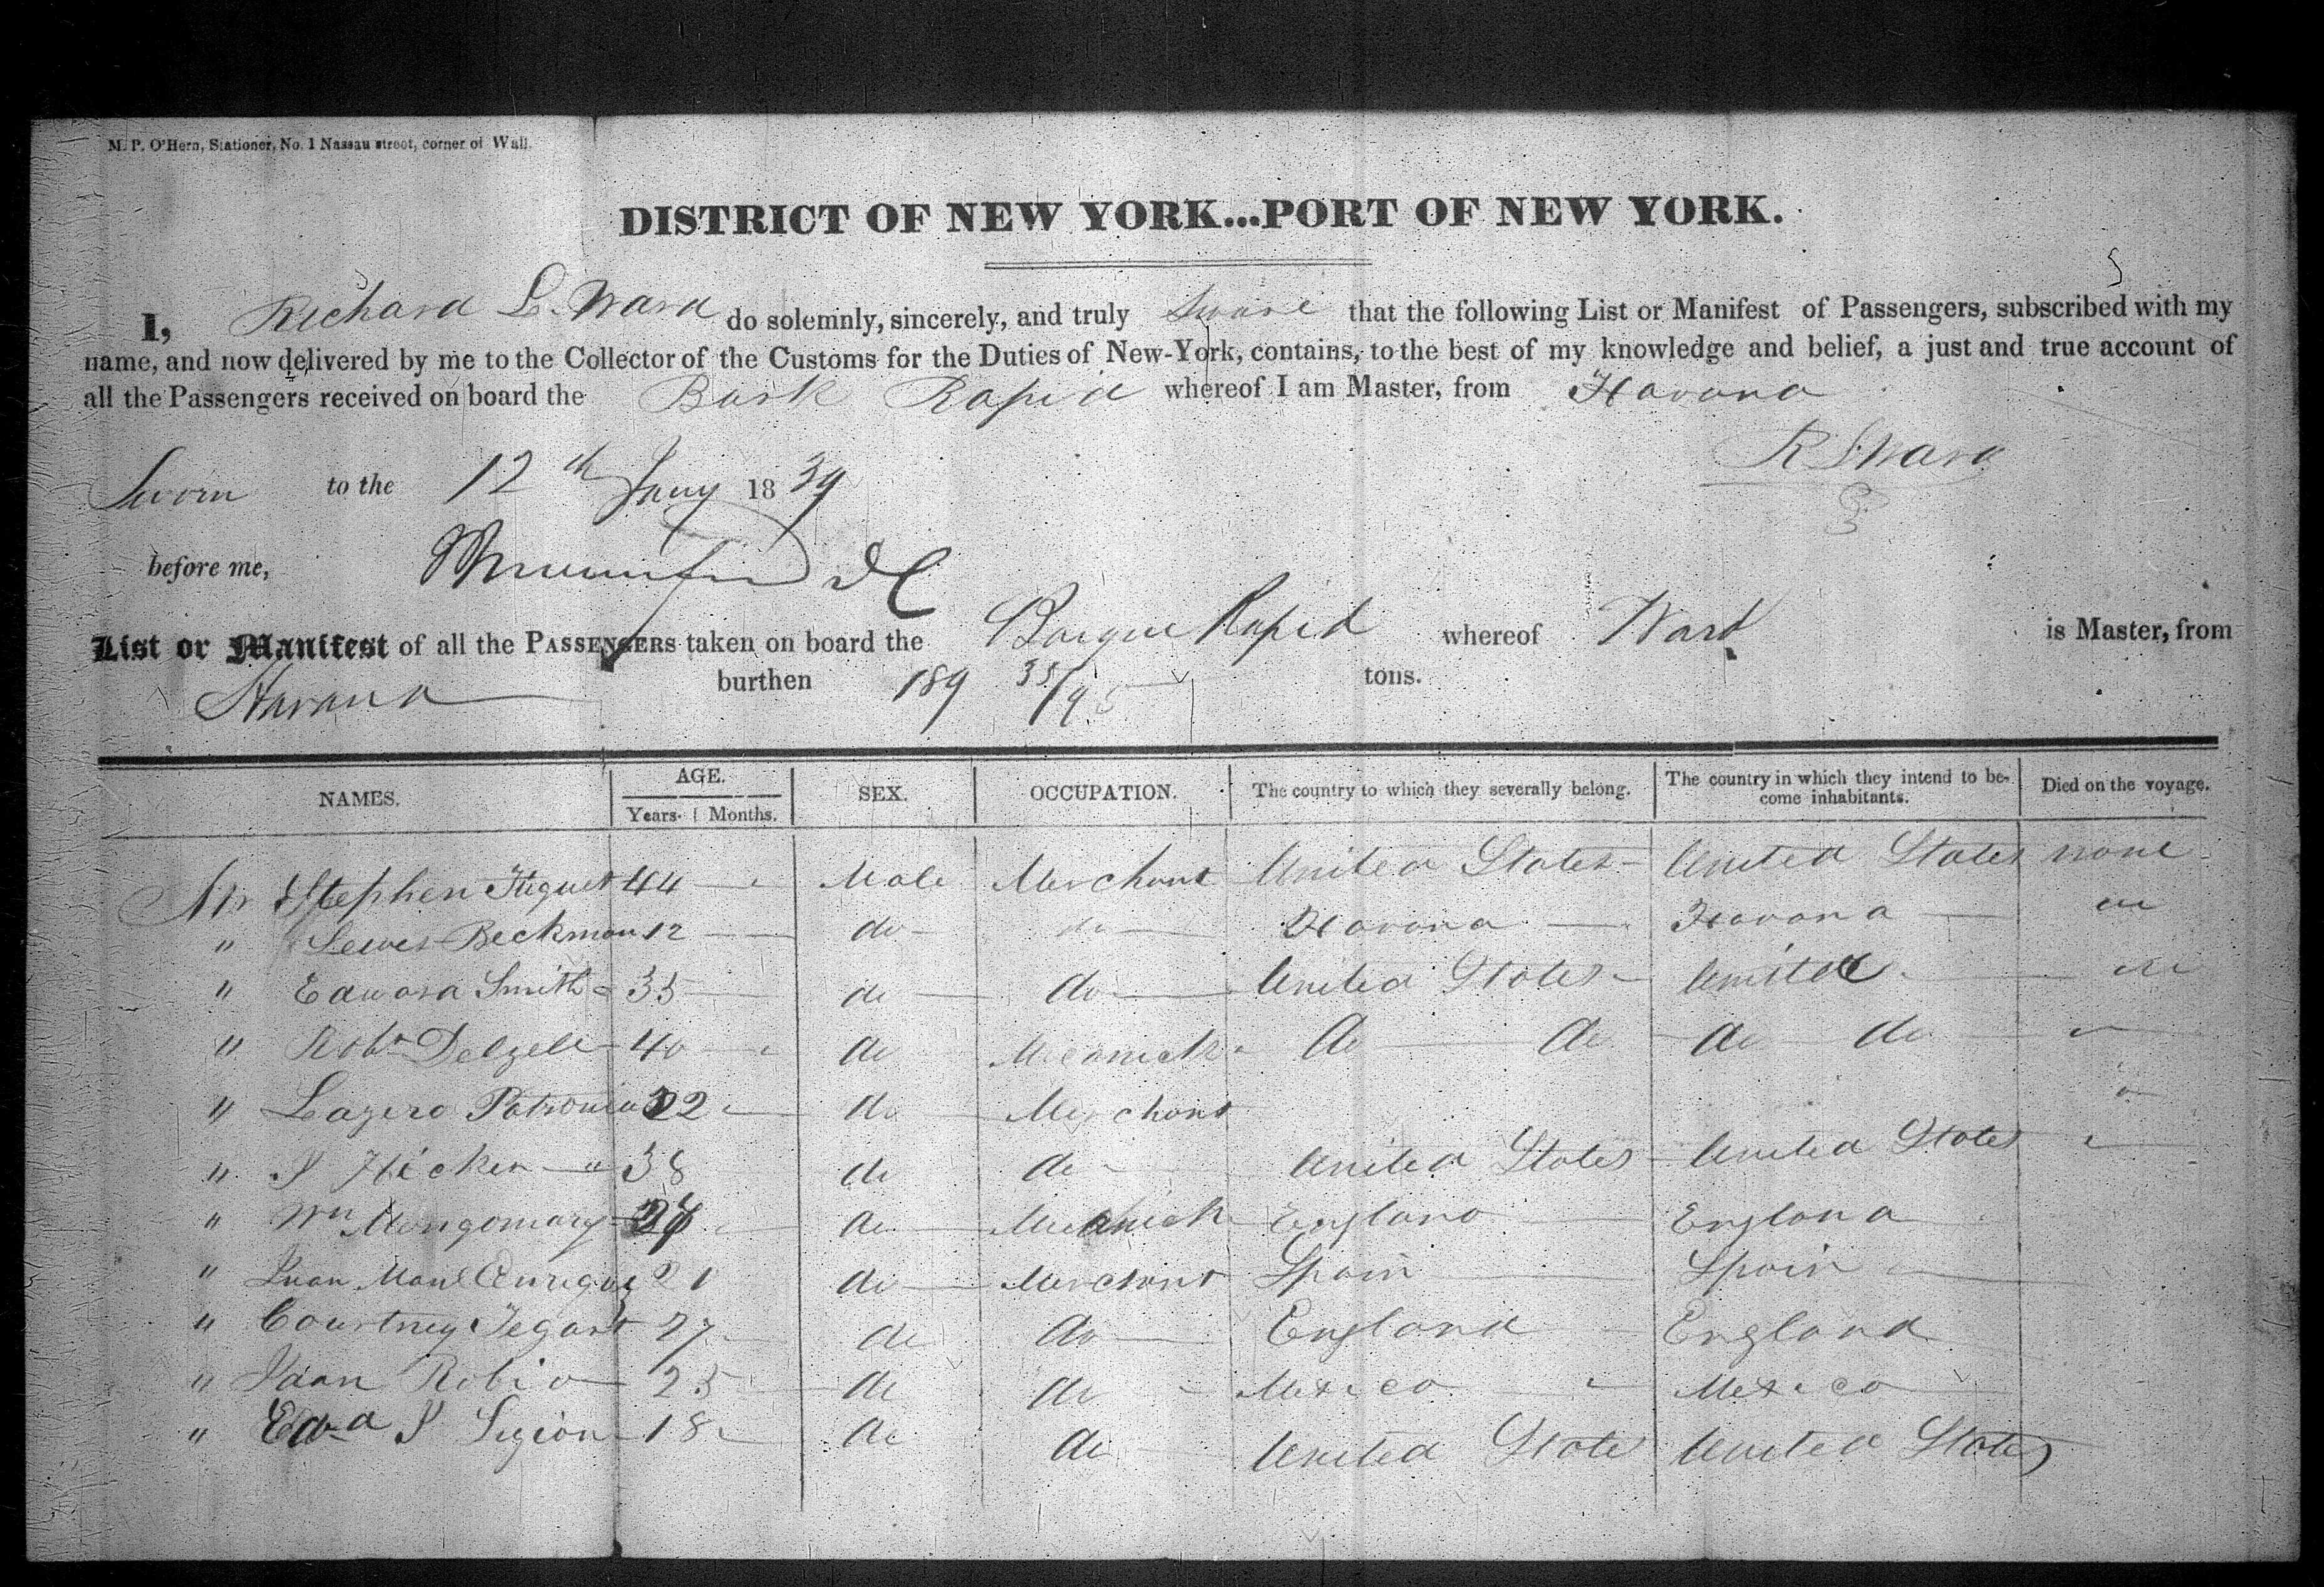 M. P. O'Hern, Stationer, No. 1 Nassau street, corner of Wall.
DISTRICT OF NEW YORK...PORT OF NEW YORK.
I, Richard L. Ward do solemnly, sincerely, and truly Sware that the following List or Manifest of Passengers, subscribed with my
name, and now delivered by me to the Collector of the Customs for the Duties of New-York, contains, to the best of my knowledge and belief, a just and true account of
all the Passengers received on board the Bark Rapid whereof I am Master, from Havana
Sworn to the 12th Jany 1839
before me,
List or Manifest of all the PASSENGERS taken on board the Barque Rapid whereof Ward is Master, from
Havana burthen 189 35/95 tons.
NAMES. AGE. SEX. OCCUPATION. The country to which they severally belong. The country in which they intend to be- Died on the voyage.
Years. Months. come inhabitants.
Mr Stephen 44 Male Merchant United States United States none
" Lewes Beckman 12 do do Havana Havana
" Edward Smith 35 do do United States United
" Robt 40 do Mecanick do do do do
" Lazero 22 do Merchant
" 38 do do United States United States
" Wm Mongomary do England England
" Juan Manl Enriquez 21 do Merchant Spain Spain
" Courtney Tegart 27 do do England England
" Juan Robio 25 do do Mexico Mexico
" Edwd 18 do do United State United States